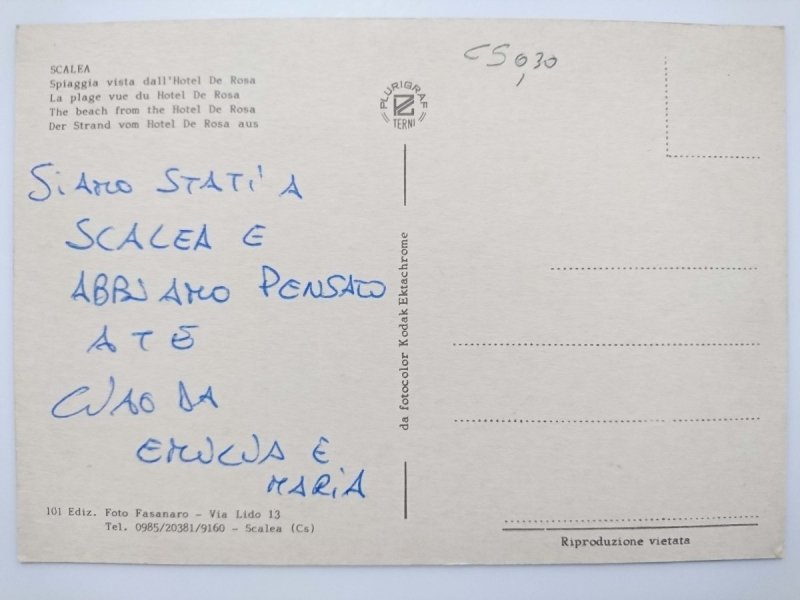 SCALEA
Spiaggia vista dall'Hotel De Rosa
La plage vue du Hotel De Rosa
The beach from the Hotel De Rosa
Der Strand vom Hotel De Rosa aus
CS 0,30
PLURIGRAF
TERNI
SIAMO STATI A
SCALEA E
ABBIAMO PENSATO
A TE
CIAO DA
EMILIA E
MARIA
da fotocolor Kodak Ektachrome
101 Ediz. Foto Fasanaro - Via Lido 13
Tel. 0985/20381/9160 - Scalea (Cs)
Riproduzione vietata